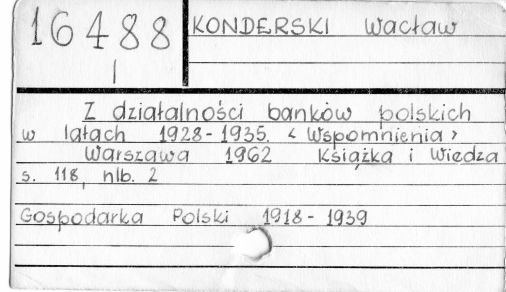 16488 KONDERSKI Wacław
I
Z działalności banków polskich
w latach 1928-1935. < Wspomnienia >
Warszawa 1962 Książka i Wiedza
s. 118, nlb. 2
Gospodarka Polski 1918-1939